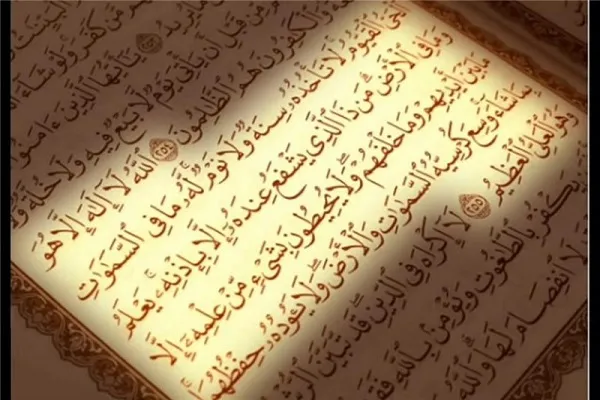 مَّن كَفَرَ وَلَوْ شَآءَ
مَا يُرِيدُ ۝ يَٰٓأَيُّهَا ٱلَّذِينَ ءَامَنُوٓا۟
مِّن قَبْلِ أَن يَأْتِىَ يَوْمٌ لَّا بَيْعٌ فِيهِ وَلَا خُلَّةٌ
وَٱلْكَٰفِرُونَ هُمُ ٱلظَّٰلِمُونَ ۝٢٥٤ ٱللَّهُ لَآ إِلَٰهَ إِلَّا هُوَ
ٱلْحَىُّ ٱلْقَيُّومُ لَا تَأْخُذُهُۥ سِنَةٌ وَلَا نَوْمٌ لَّهُۥ مَا فِى ٱلسَّمَٰوَٰتِ
وَمَا فِى ٱلْأَرْضِ مَن ذَا ٱلَّذِى يَشْفَعُ عِندَهُۥٓ إِلَّا بِإِذْنِهِۦ يَعْلَمُ
مَا بَيْنَ أَيْدِيهِمْ وَمَا خَلْفَهُمْ وَلَا يُحِيطُونَ بِشَىْءٍ مِّنْ عِلْمِهِۦٓ إِلَّا
بِمَا شَآءَ وَسِعَ كُرْسِيُّهُ ٱلسَّمَٰوَٰتِ وَٱلْأَرْضَ وَلَا يَـُٔودُهُۥ حِفْظُهُمَا
وَهُوَ ٱلْعَلِىُّ ٱلْعَظِيمُ ۝٢٥٥ لَآ إِكْرَاهَ فِى ٱلدِّينِ قَد تَّبَيَّنَ
يَكْفُرْ بِٱلطَّٰغُوتِ وَيُؤْمِنۢ بِٱللَّهِ
لَا ٱنفِصَامَ لَهَا وَٱللَّهُ